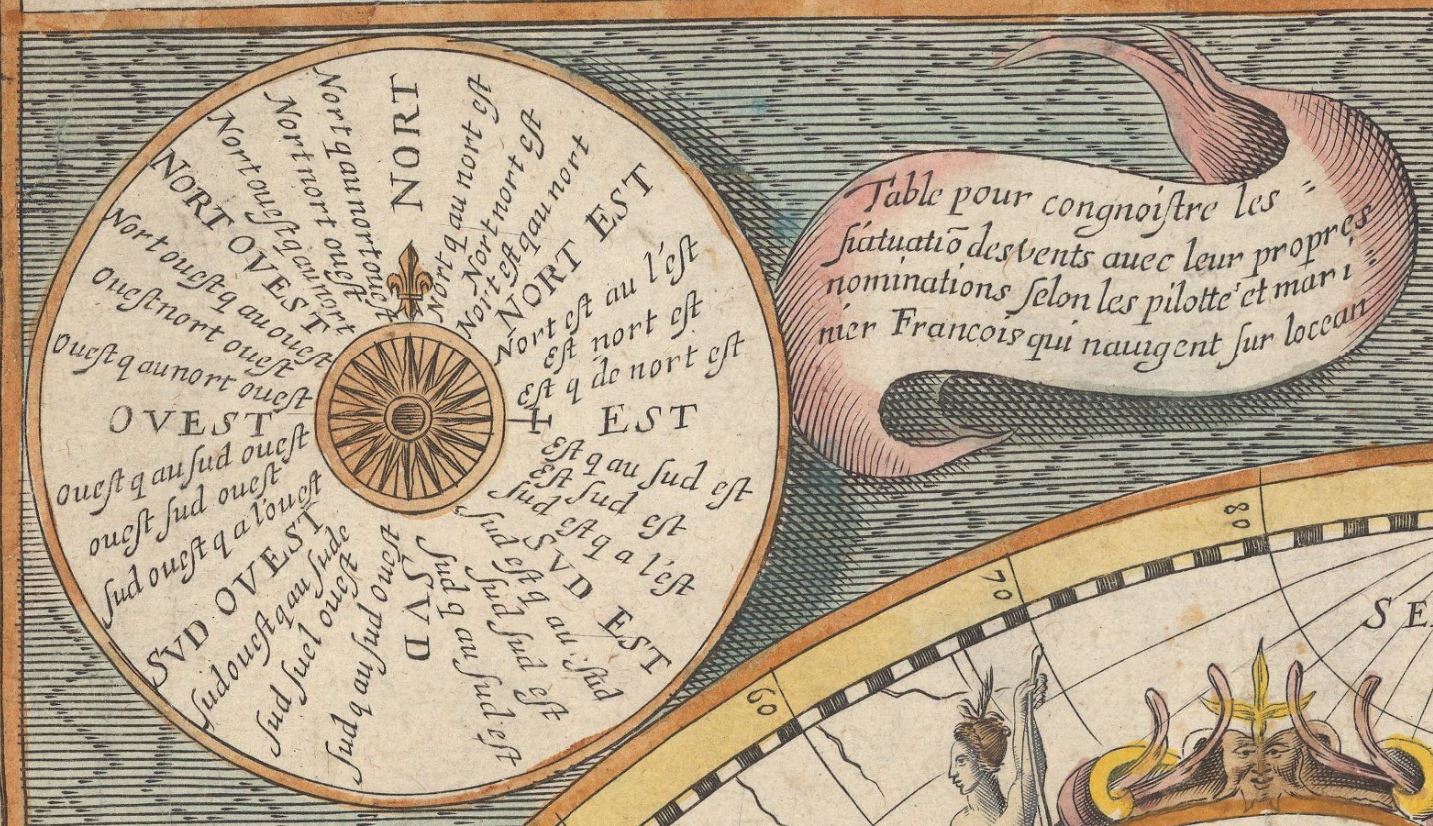 NORT
Nort q au nort est
Nort nort est
Nort est q au nort
NORT EST
Nort est au l'est
Est nort est
Est q de nort est
EST
Est q au sud est
Est sud est
Sud est q a l'est
SVD EST
Sud est q au sud
Sud sud est
Sud q au sud est
SVD
Sud q au sud ouest
Sud suel ouest
Sudouest q au sude
SVD OVEST
Sud ouest q a l'ouest
ouest sud ouest
ouest q au sud ouest
OVEST
Ouest q aunort ouest
Ouestnort ouest
Nort ouest q au ouest
NORT OVEST
Nort ouest q au nort
Nort nort ouest
Nort q au nort ouest
Table pour congnoistre les =
siatuatiõ des vents auec leur propres
nominations selon les pilotte' et mari =
nier Francois qui nauigent sur locean
60
70
80
SE